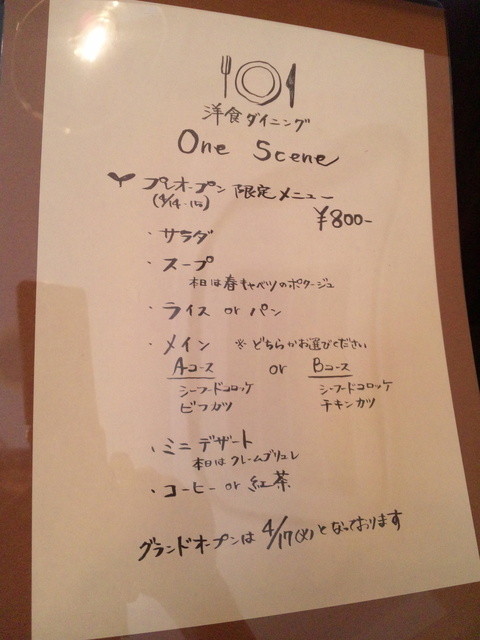 洋食ダイニング
One Scene
プレオープン 限定メニュー
(4/14-15)
¥800-
・サラダ
・スープ
本日は春キャベツのポタージュ
・ライス or パン
・メイン ※どちらかお選びください
Aコース or Bコース
シーフードコロッケ シーフードコロッケ
ビフカツ チキンカツ
・ミニデザート
本日はクレームブリュレ
・コーヒー or 紅茶
グランドオープンは 4/17(火)となっております